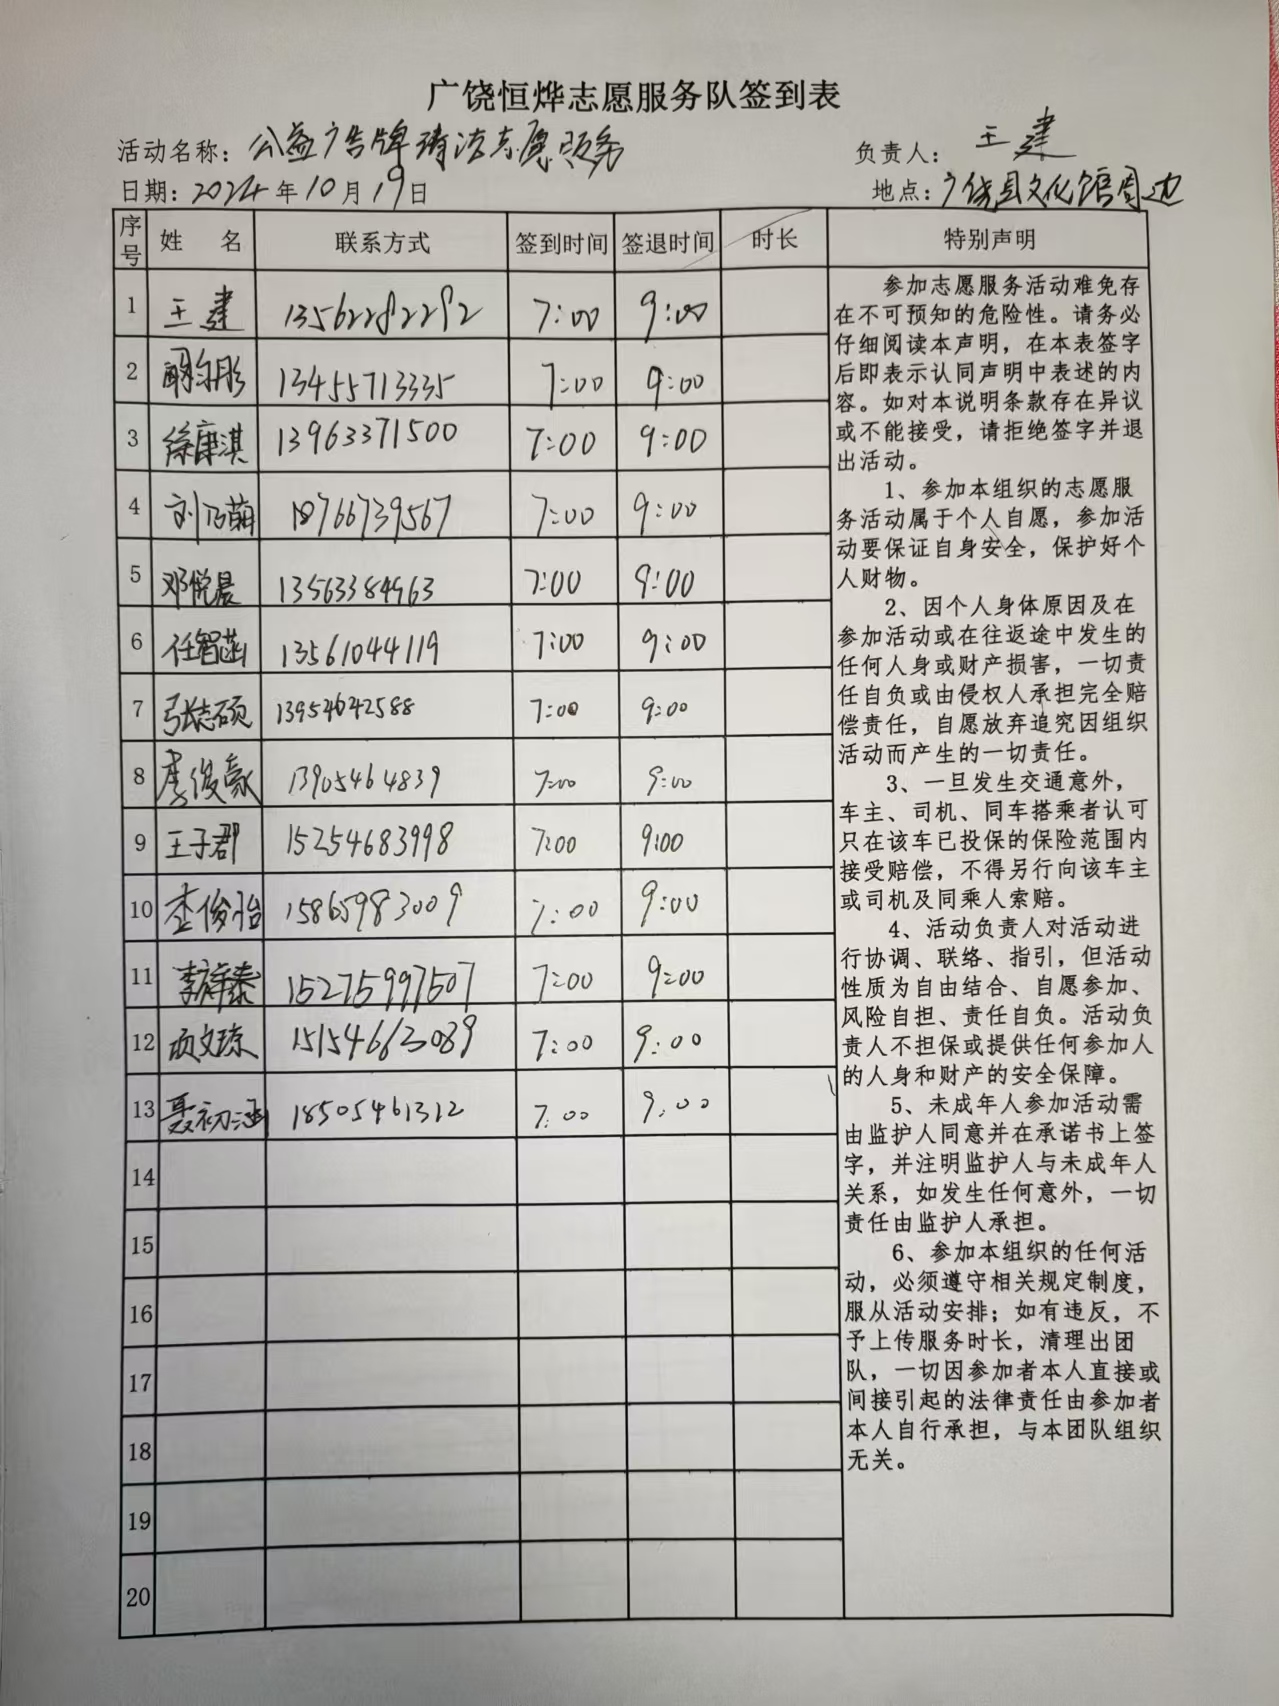 广饶恒烨志愿服务队签到表
活动名称：公益广告牌清洁志愿服务 负责人：王建
日期：2024年10月19日 地点：广饶县文化馆周边
序号 姓名 联系方式 签到时间 签退时间 时长 特别声明
1 王建 13562282292 7:00 9:00
2 13455713335 7:00 9:00
3 徐康淇 13963371500 7:00 9:00
4 刘乃萌 18766739567 7:00 9:00
5 邓悦晨 13563384963 7:00 9:00
6 任智菡 13561044119 7:00 9:00
7 张志硕 13954642588 7:00 9:00
8 李俊豪 13905464839 7:00 9:00
9 王子郡 15254683998 7:00 9:00
10 李俊怡 15865983009 7:00 9:00
11 李梓泰 15275997507 7:00 9:00
12 15154663089 7:00 9:00
13 聂初涵 18505461312 7:00 9:00
14
15
16
17
18
19
20
参加志愿服务活动难免存
在不可预知的危险性。请务必
仔细阅读本声明，在本表签字
后即表示认同声明中表述的内
容。如对本说明条款存在异议
或不能接受，请拒绝签字并退
出活动。
1、参加本组织的志愿服
务活动属于个人自愿，参加活
动要保证自身安全，保护好个
人财物。
2、因个人身体原因及在
参加活动或在往返途中发生的
任何人身或财产损害，一切责
任自负或由侵权人承担完全赔
偿责任，自愿放弃追究因组织
活动而产生的一切责任。
3、一旦发生交通意外，
车主、司机、同车搭乘者认可
只在该车已投保的保险范围内
接受赔偿，不得另行向该车主
或司机及同乘人索赔。
4、活动负责人对活动进
行协调、联络、指引，但活动
性质为自由结合、自愿参加、
风险自担、责任自负。活动负
责人不担保或提供任何参加人
的人身和财产的安全保障。
5、未成年人参加活动需
由监护人同意并在承诺书上签
字，并注明监护人与未成年人
关系，如发生任何意外，一切
责任由监护人承担。
6、参加本组织的任何活
动，必须遵守相关规定制度，
服从活动安排；如有违反，不
予上传服务时长，清理出团
队，一切因参加者本人直接或
间接引起的法律责任由参加者
本人自行承担，与本团队组织
无关。